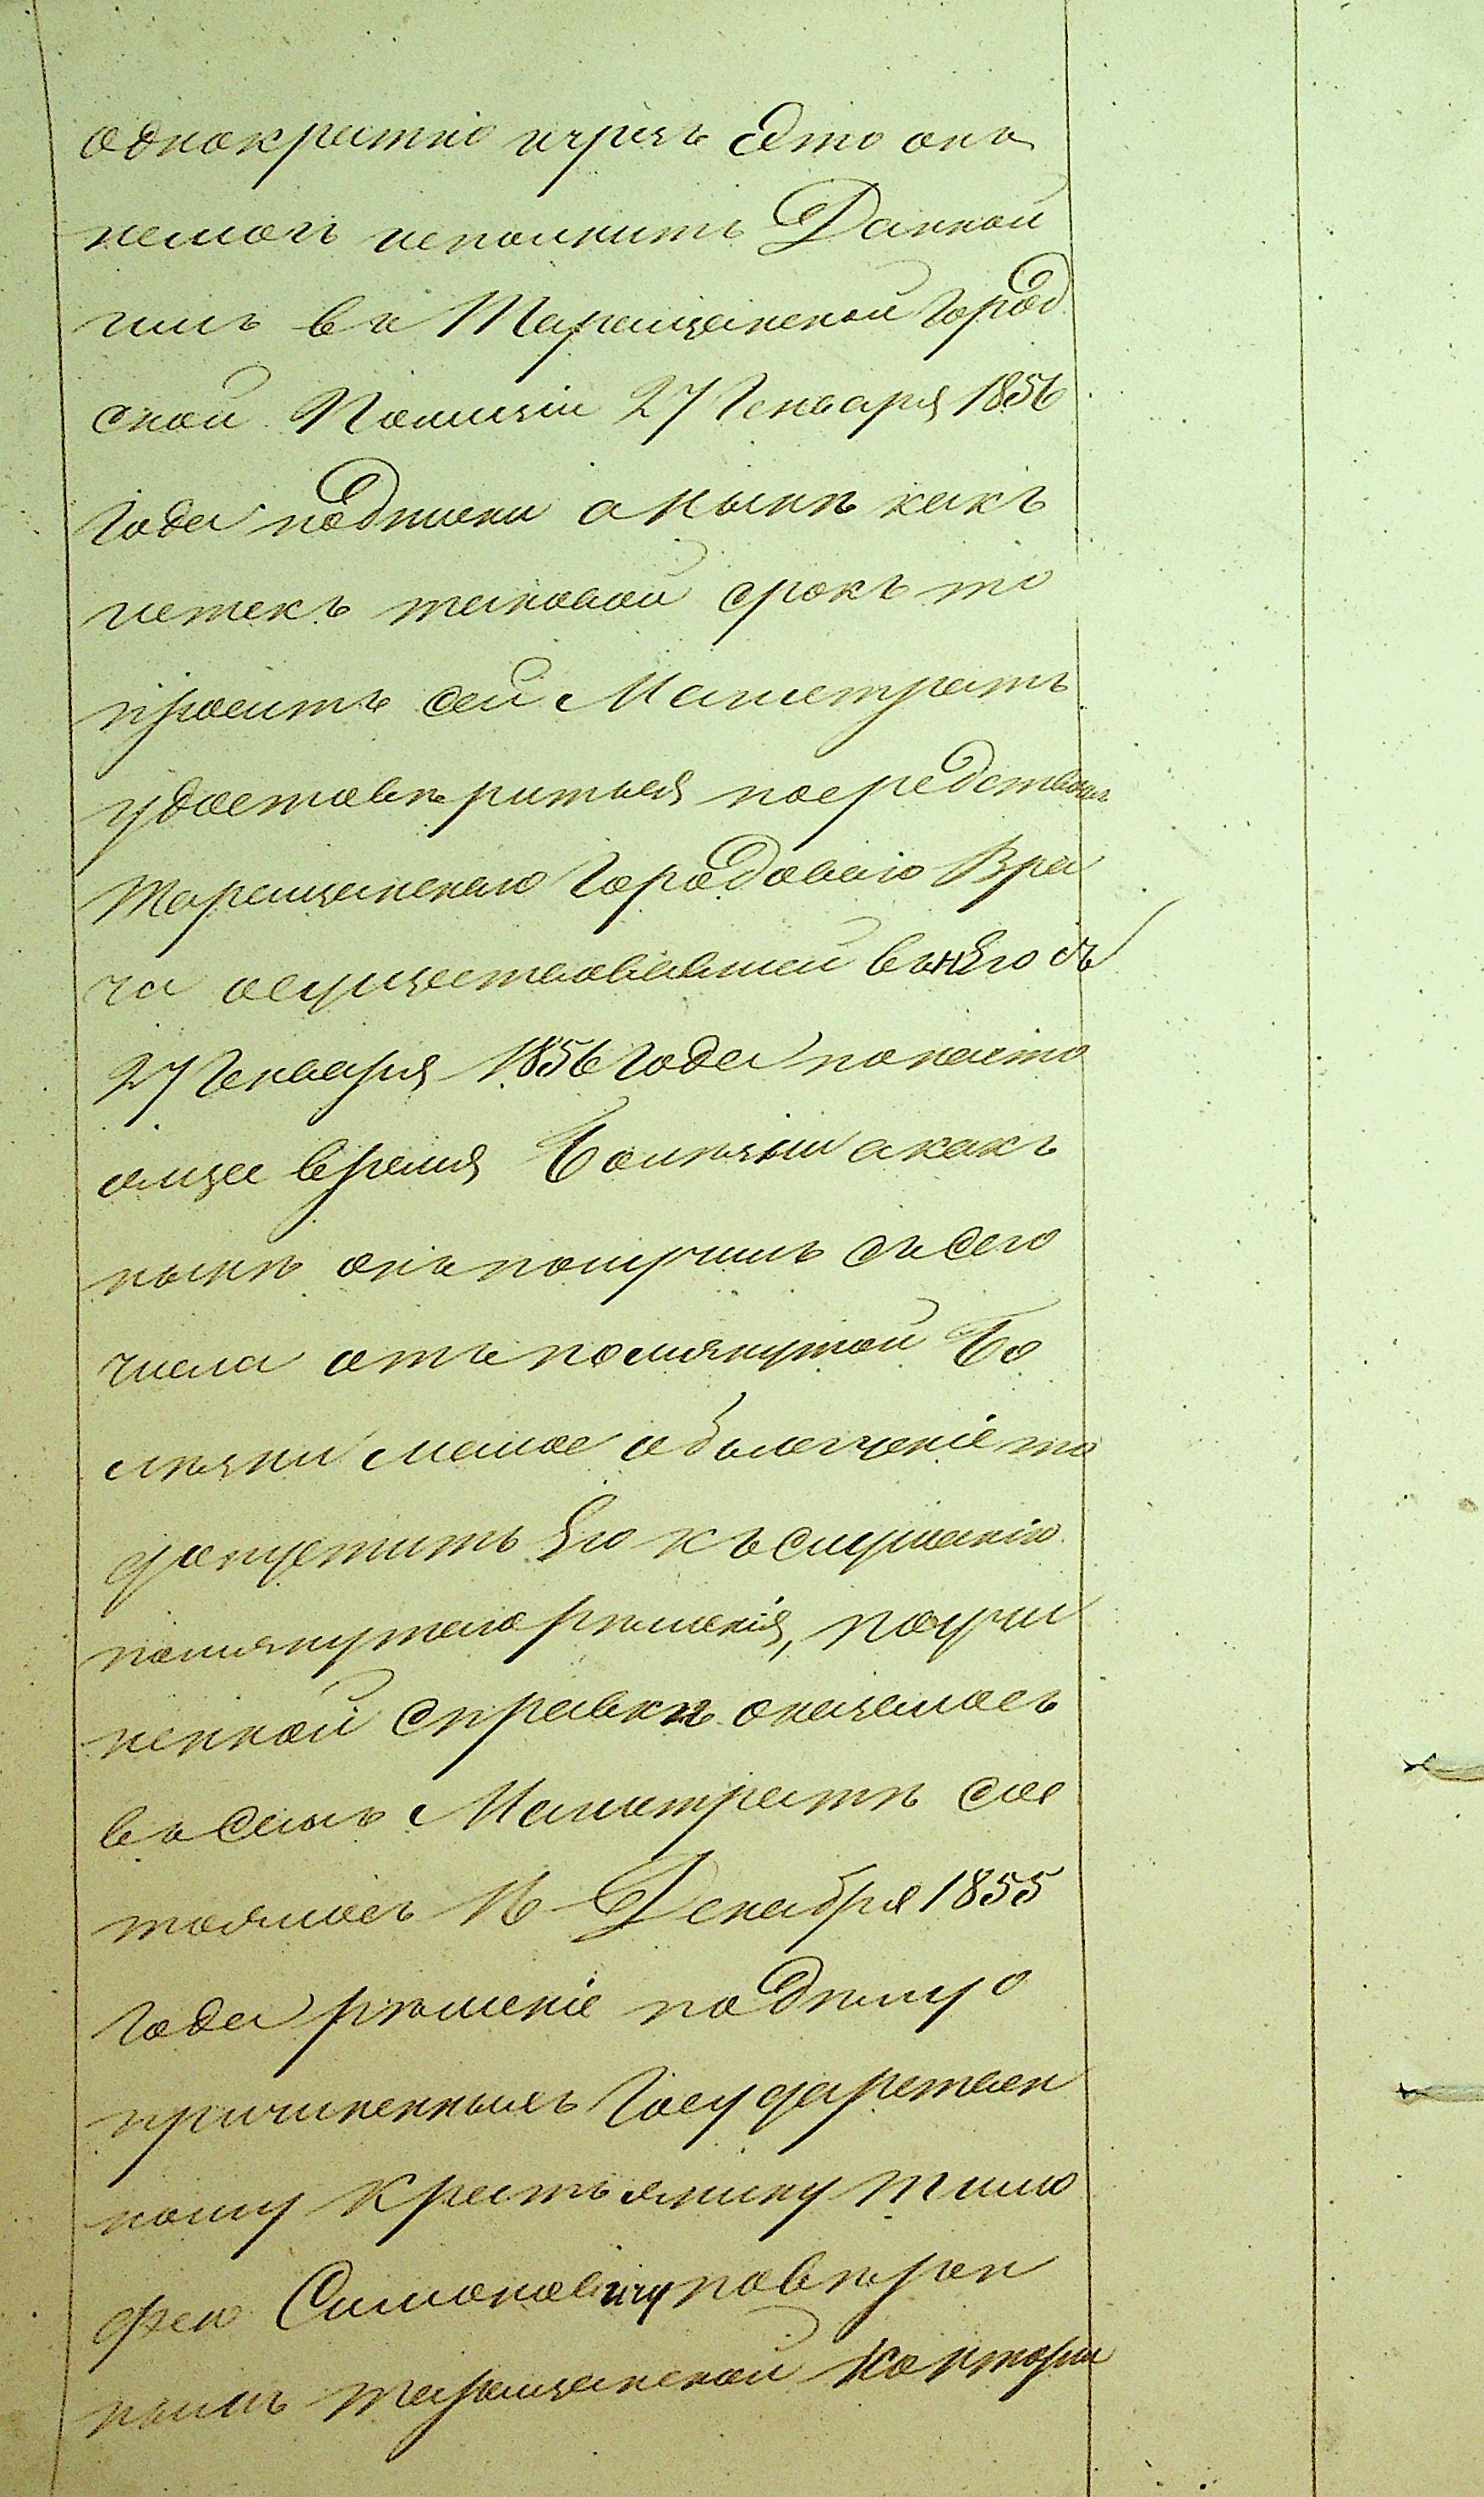 однократно чрезъ что онъ
немогъ исполнить Данной
имъ въ Таращанской Город
ской Полиціи 27 Генваря 1856
Года подписки а нынѣ какъ
истекъ таковой срокъ то
проситъ сей Магистратъ
удостовѣритьея посредствомъ
Таращанскаго Городоваго Вра
ча осуществовавшей внѣго съ
27 Генваря 1856 Года понасто
ящее время болѣзни а какъ
нынѣ онъ получилъ съ сего
числа отъ помянутой бо
лѣзни малое облегченіе то
допустить Его къ слушанію
помянутаго рѣшенія, поучи
ненной справкѣ оказалось
въ семъ Магистратѣ сос
тоялось 16 Декабря 1855
Года рѣшеніе подѣлу о
причиненныхъ Государствен
ному Крестьянину Тимо
фею Симоновичу повѣрен
нымъ таращанской Конторы